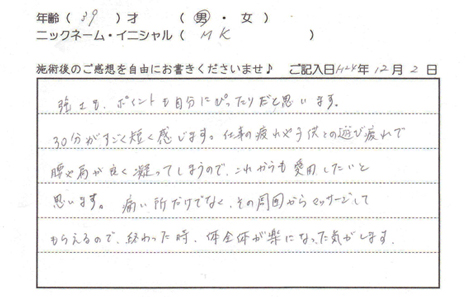 年齢（ 39 ）才 （ 男 ・ 女 ）
ニックネーム・イニシャル（ MK ）
施術後のご感想を自由にお書きくださいませ♪ ご記入日H24年12月2日
強さも、ポイントも自分にぴったりだと思います。
30分がすごく短く感じます。仕事の疲れや子供との遊び疲れで
腰や肩が良く凝ってしまうので、これからも愛用したいと
思います。 痛い所だけでなく、その周囲からマッサージして
もらえるので、終わった時、体全体が楽になった気がします。